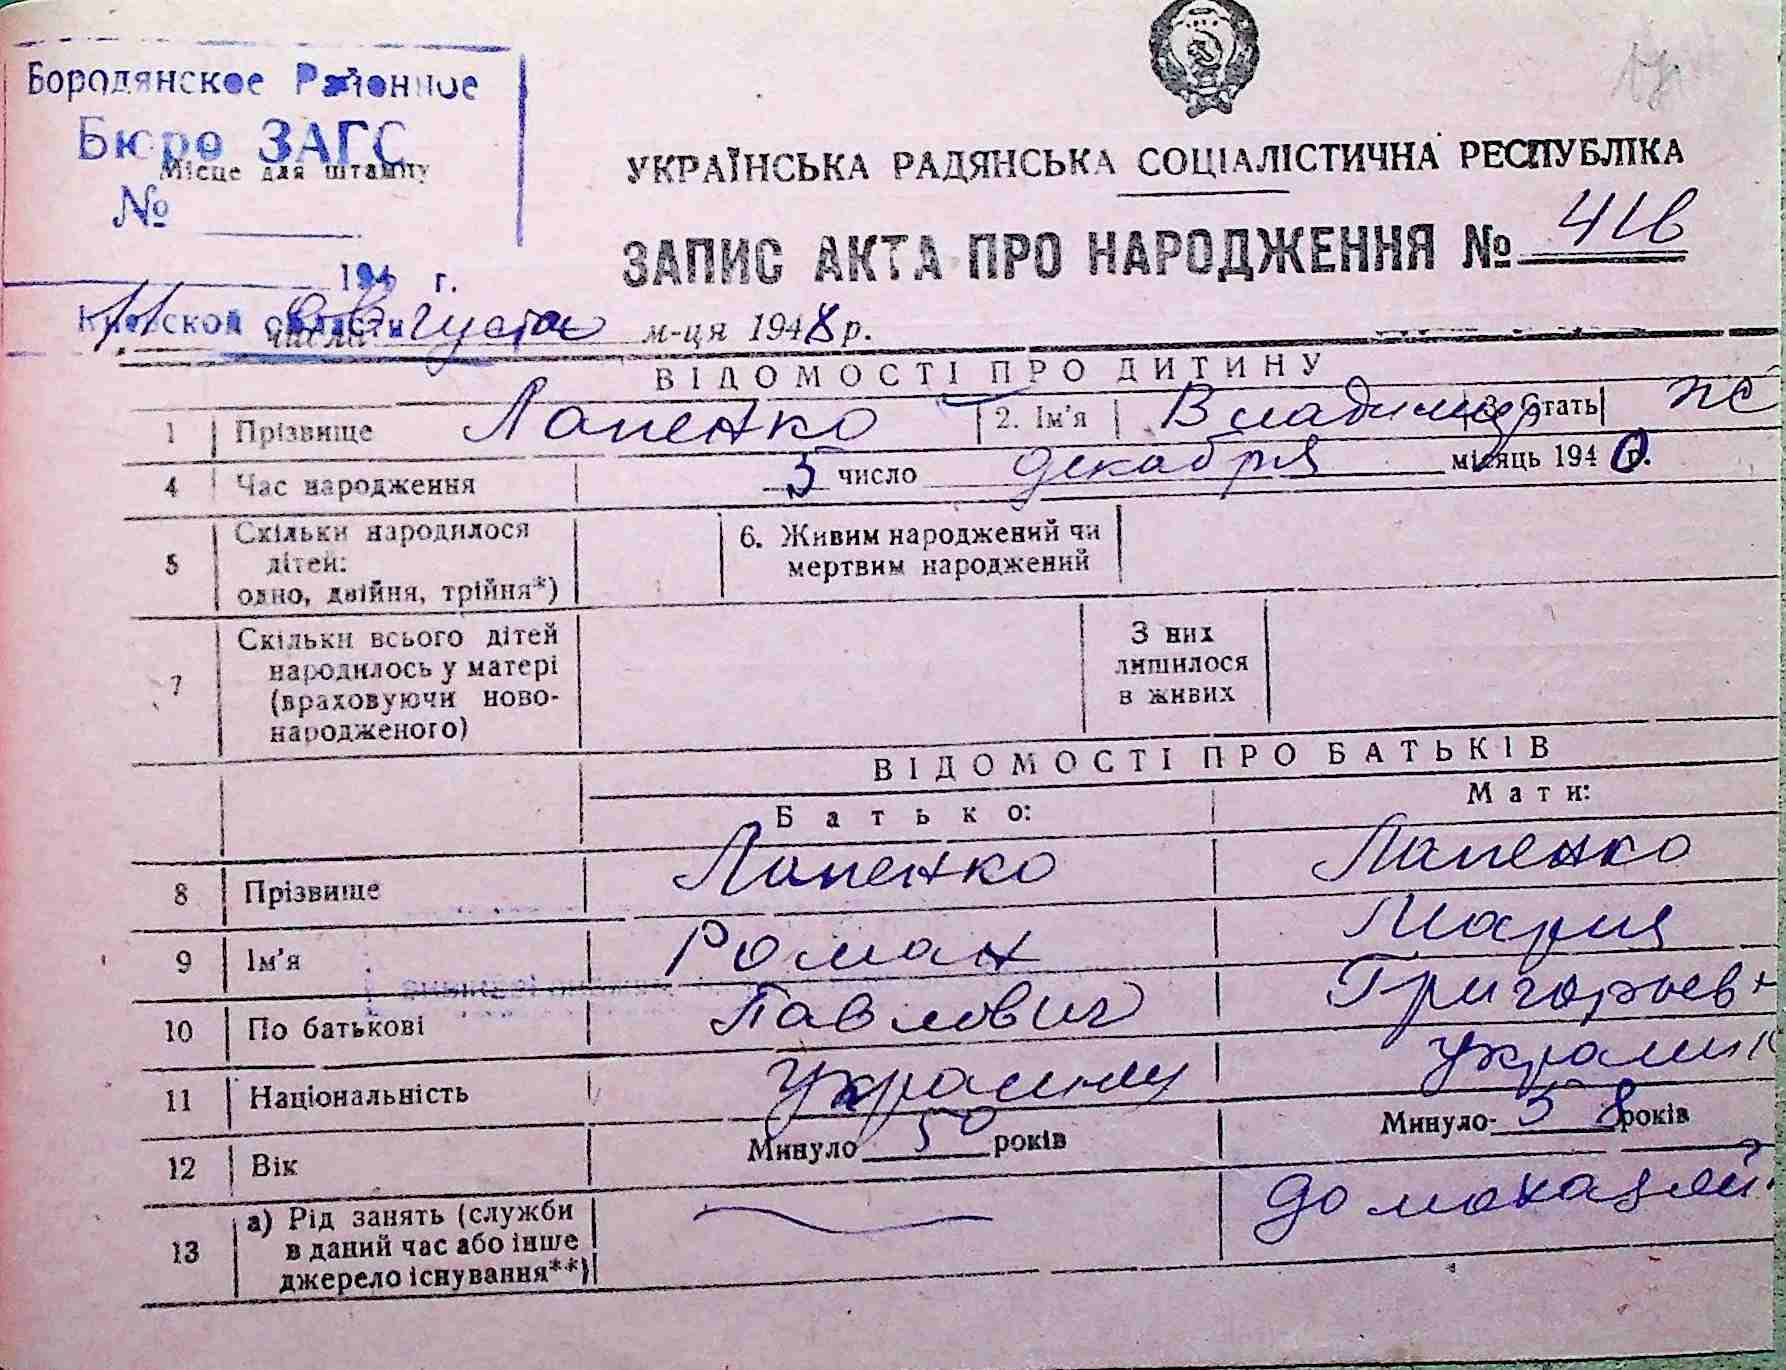 Бородянское Районное
Бюро ЗАГС
Місце для штампу
№
194 г.
Киевской области
УКРАЇНСЬКА РАДЯНСЬКА СОЦІАЛІСТИЧНА РЕСПУБЛІКА
ЗАПИС АКТА ПРО НАРОДЖЕННЯ № 416
11 числа августа м-ця 1948 р.
ВІДОМОСТІ ПРО ДИТИНУ
1 Прізвище Лапенко 2. Ім'я Владимир 3. Стать
4 Час народження 5 число декабря місяць 1940 р.
5 Скільки народилося дітей: одно, двійня, трійня*) 6. Живим народжений чи мертвим народжений
7 Скільки всього дітей народилось у матері (враховуючи ново-народженого) З них лишилося в живих
ВІДОМОСТІ ПРО БАТЬКІВ
Батько: Мати:
8 Прізвище Лапенко Лапенко
9 Ім'я Роман Мария
10 По батькові Павлович Григорьевн
11 Національність украинец украинк
12 Вік Минуло 50 років Минуло 58 років
13 а) Рід занять (служби в даний час або інше джерело існування**)